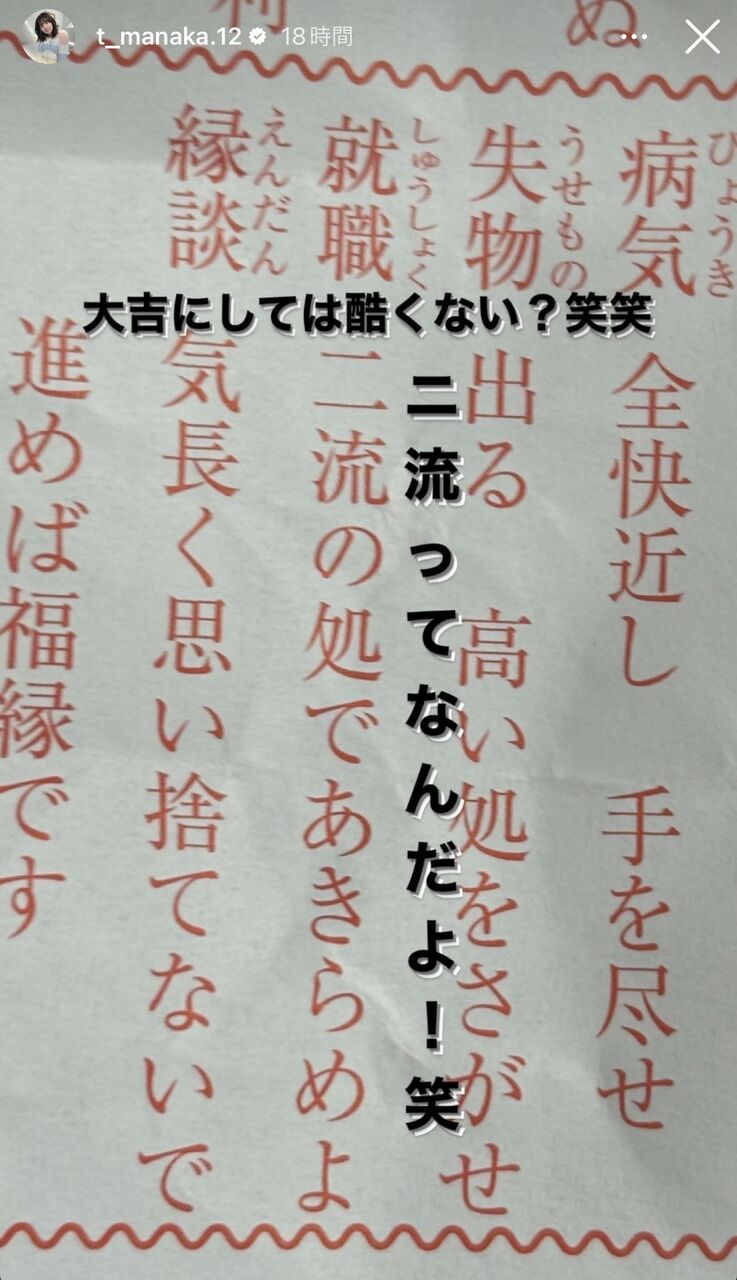 t_manaka.12 18時間
ぬ
病気 全快近し 手を尽せ
びょうき
失物 出る 高い処をさがせ
うせもの
就職 二流の処であきらめよ
しゅうしょく
縁談 気長く思い捨てないで
えんだん
進めば福縁です
大吉にしては酷くない？笑笑
二流ってなんだよ！笑